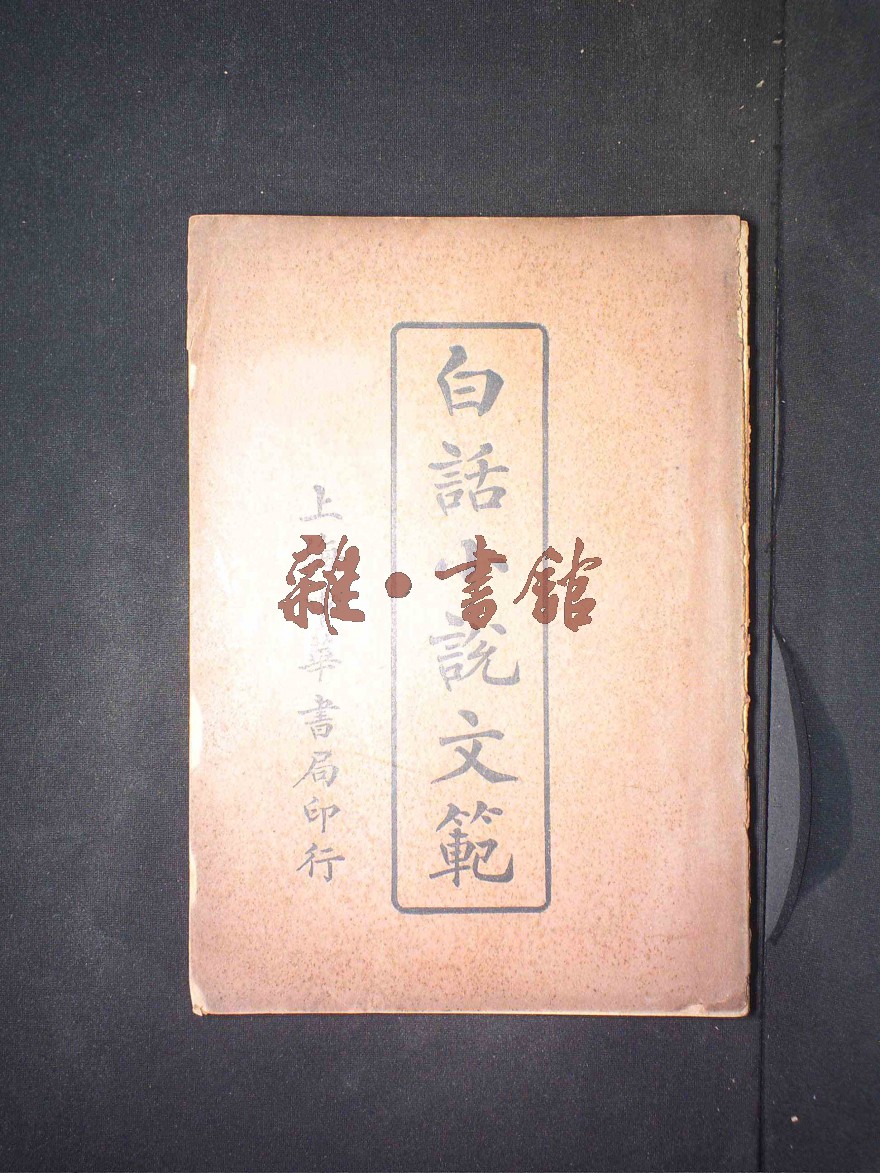 白話小說文範
上海華書局印行
雜•書館